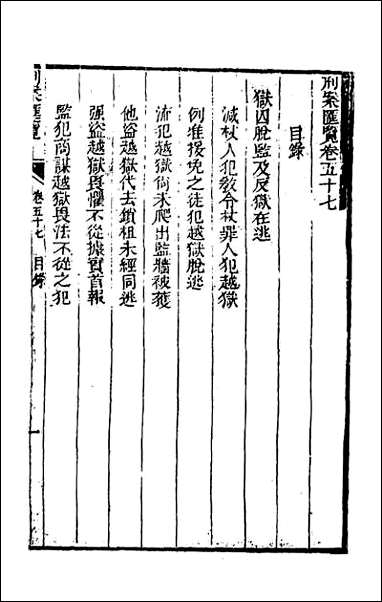 刑案匯覽卷五十七
目錄
獄囚脫監及反獄在逃
減杖人犯教令杖罪人犯越獄
例准援免之徒犯越獄脫逃
流犯越獄尙未爬出監牆被獲
他盜越獄代去鎖杻未經同逃
强盜越獄畏懼不從據實首報
監犯商謀越獄畏法不從之犯
刑案匯覽
卷五十七 目錄
一